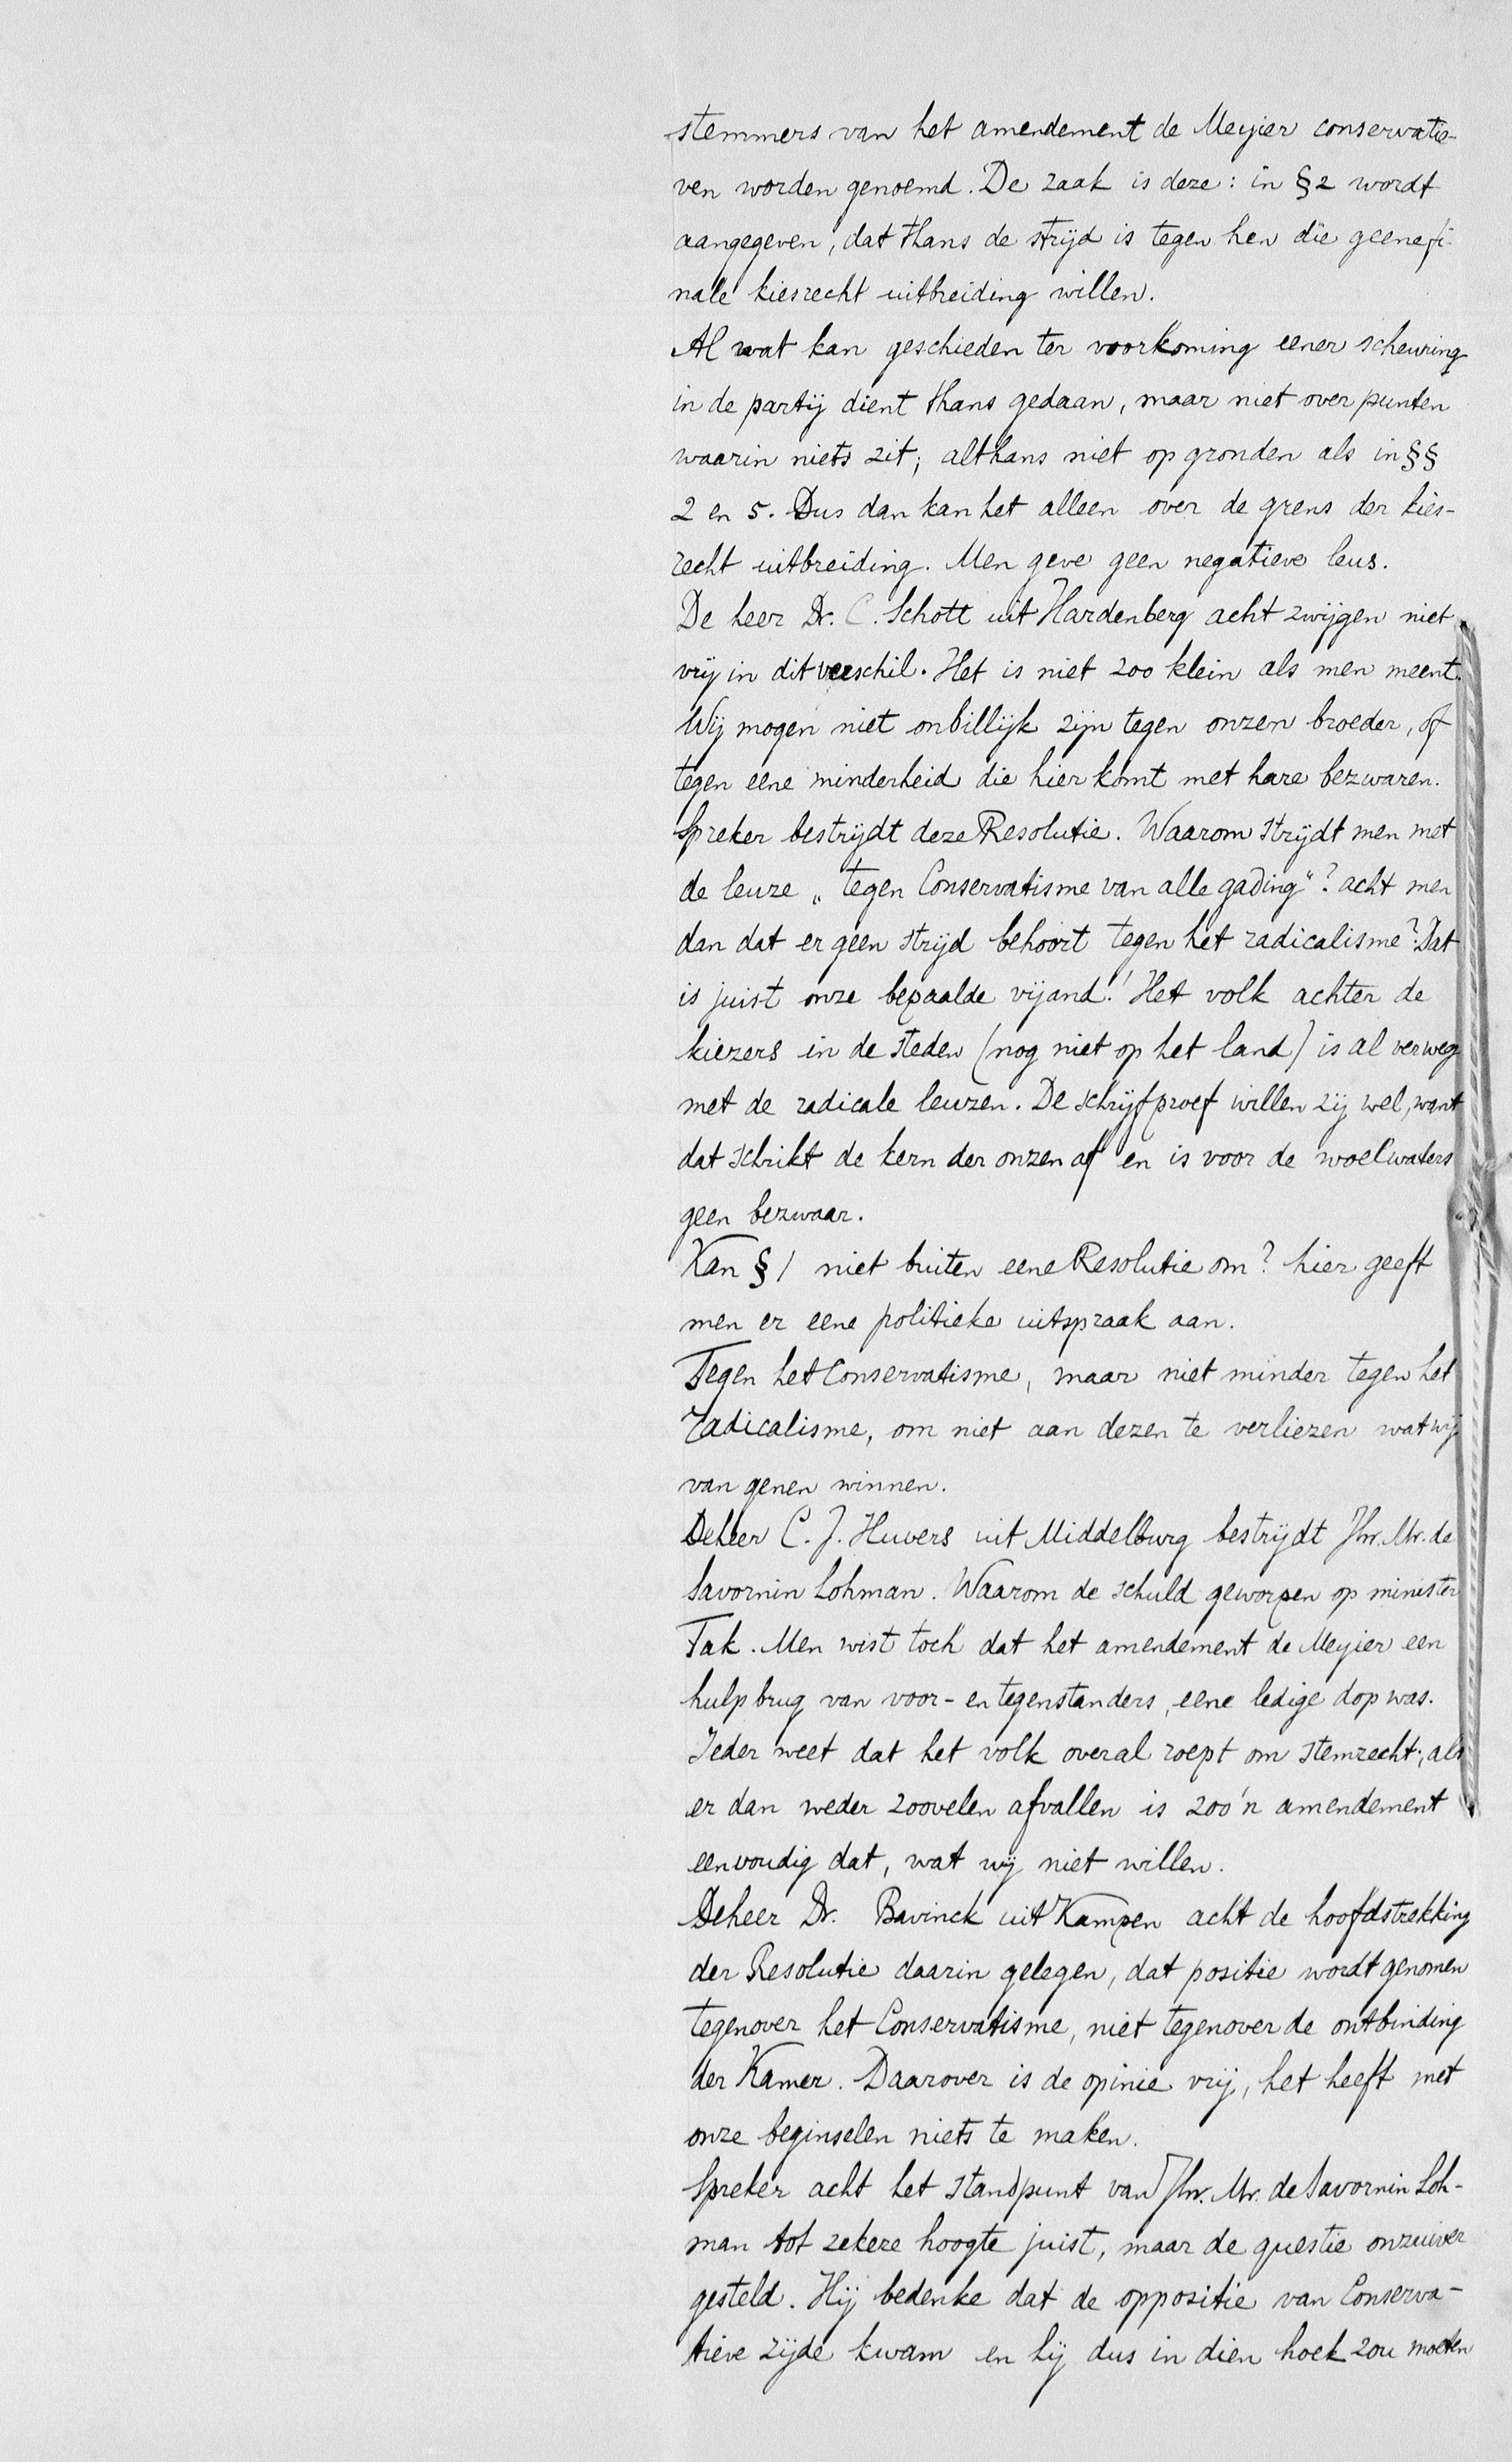 stemmers van het amendement de Meijier conservatie-
ven worden genoemd. De zaak is deze: in §2 wordt
aangegeven, dat thans de strijd is tegen hen die geene fi-
nale kiesrecht uitbreiding willen.
Al wat kan geschieden ter voorkoming eener scheuring
in de partij dient thans gedaan, maar niet over punten
waarin niets zit; althans niet op gronden als in §§
2 en 5. Dus dan kan het alleen over de grens der kies-
recht uitbreiding. Men geve geen negatieve leus.
De heer Dr. C. Schott uit Hardenberg acht zwijgen niet
vrij in dit verschil. Het is niet zoo klein als men meent.
Wij mogen niet onbillijk zijn tegen onzen broeder, of
tegen eene minderheid die hier komt met hare bezwaren.
Spreker bestrijdt deze Resolutie. Waarom strijdt men met
de leuze „tegen Conservatisme van alle gading"? acht men
dan dat er geen strijd behoort tegen het radicalisme? Dat
is juist onze bepaalde vijand! Het volk achter de
kiezers in de steden (nog niet op het land) is al verweg
met de radicale leuzen. De schrijfproef willen zij wel, want
dat schrikt de kern der onzen af en is voor de woelwaters
geen bezwaar.
Kan § 1 niet buiten eene Resolutie om? hier geeft
men er eene politieke uitspraak aan.
Tegen het Conservatisme, maar niet minder tegen het
radicalisme, om niet aan dezen te verliezen wat wij
van genen winnen.
De heer C. J. Huvers uit Middelburg bestrijdt Jhr. Mr. de
Savornin Lohman. Waarom de schuld geworpen op minister
Tak. Men wist toch dat het amendement de Meijier een
hulpbrug van voor- en tegenstanders, eene ledige dop was.
Ieder weet dat het volk overal roept om stemrecht; als
er dan weder zoovelen afvallen is zoo'n amendement
eenvoudig dat, wat wij niet willen.
De heer Dr. Bavinck uit Kampen acht de hoofdstrekking
der Resolutie daarin gelegen, dat positie wordt genomen
tegenover het Conservatisme, niet tegenover de ontbinding
der Kamer. Daarover is de opinie vrij, het heeft met
onze beginselen niets te maken.
Spreker acht het standpunt van Jhr. Mr. de Savornin Loh-
man tot zekere hoogte juist, maar de questie onzuiver
gesteld. Hij bedenke dat de oppositie van Conserva-
tieve zijde kwam en hij dus in dien hoek zou moeten